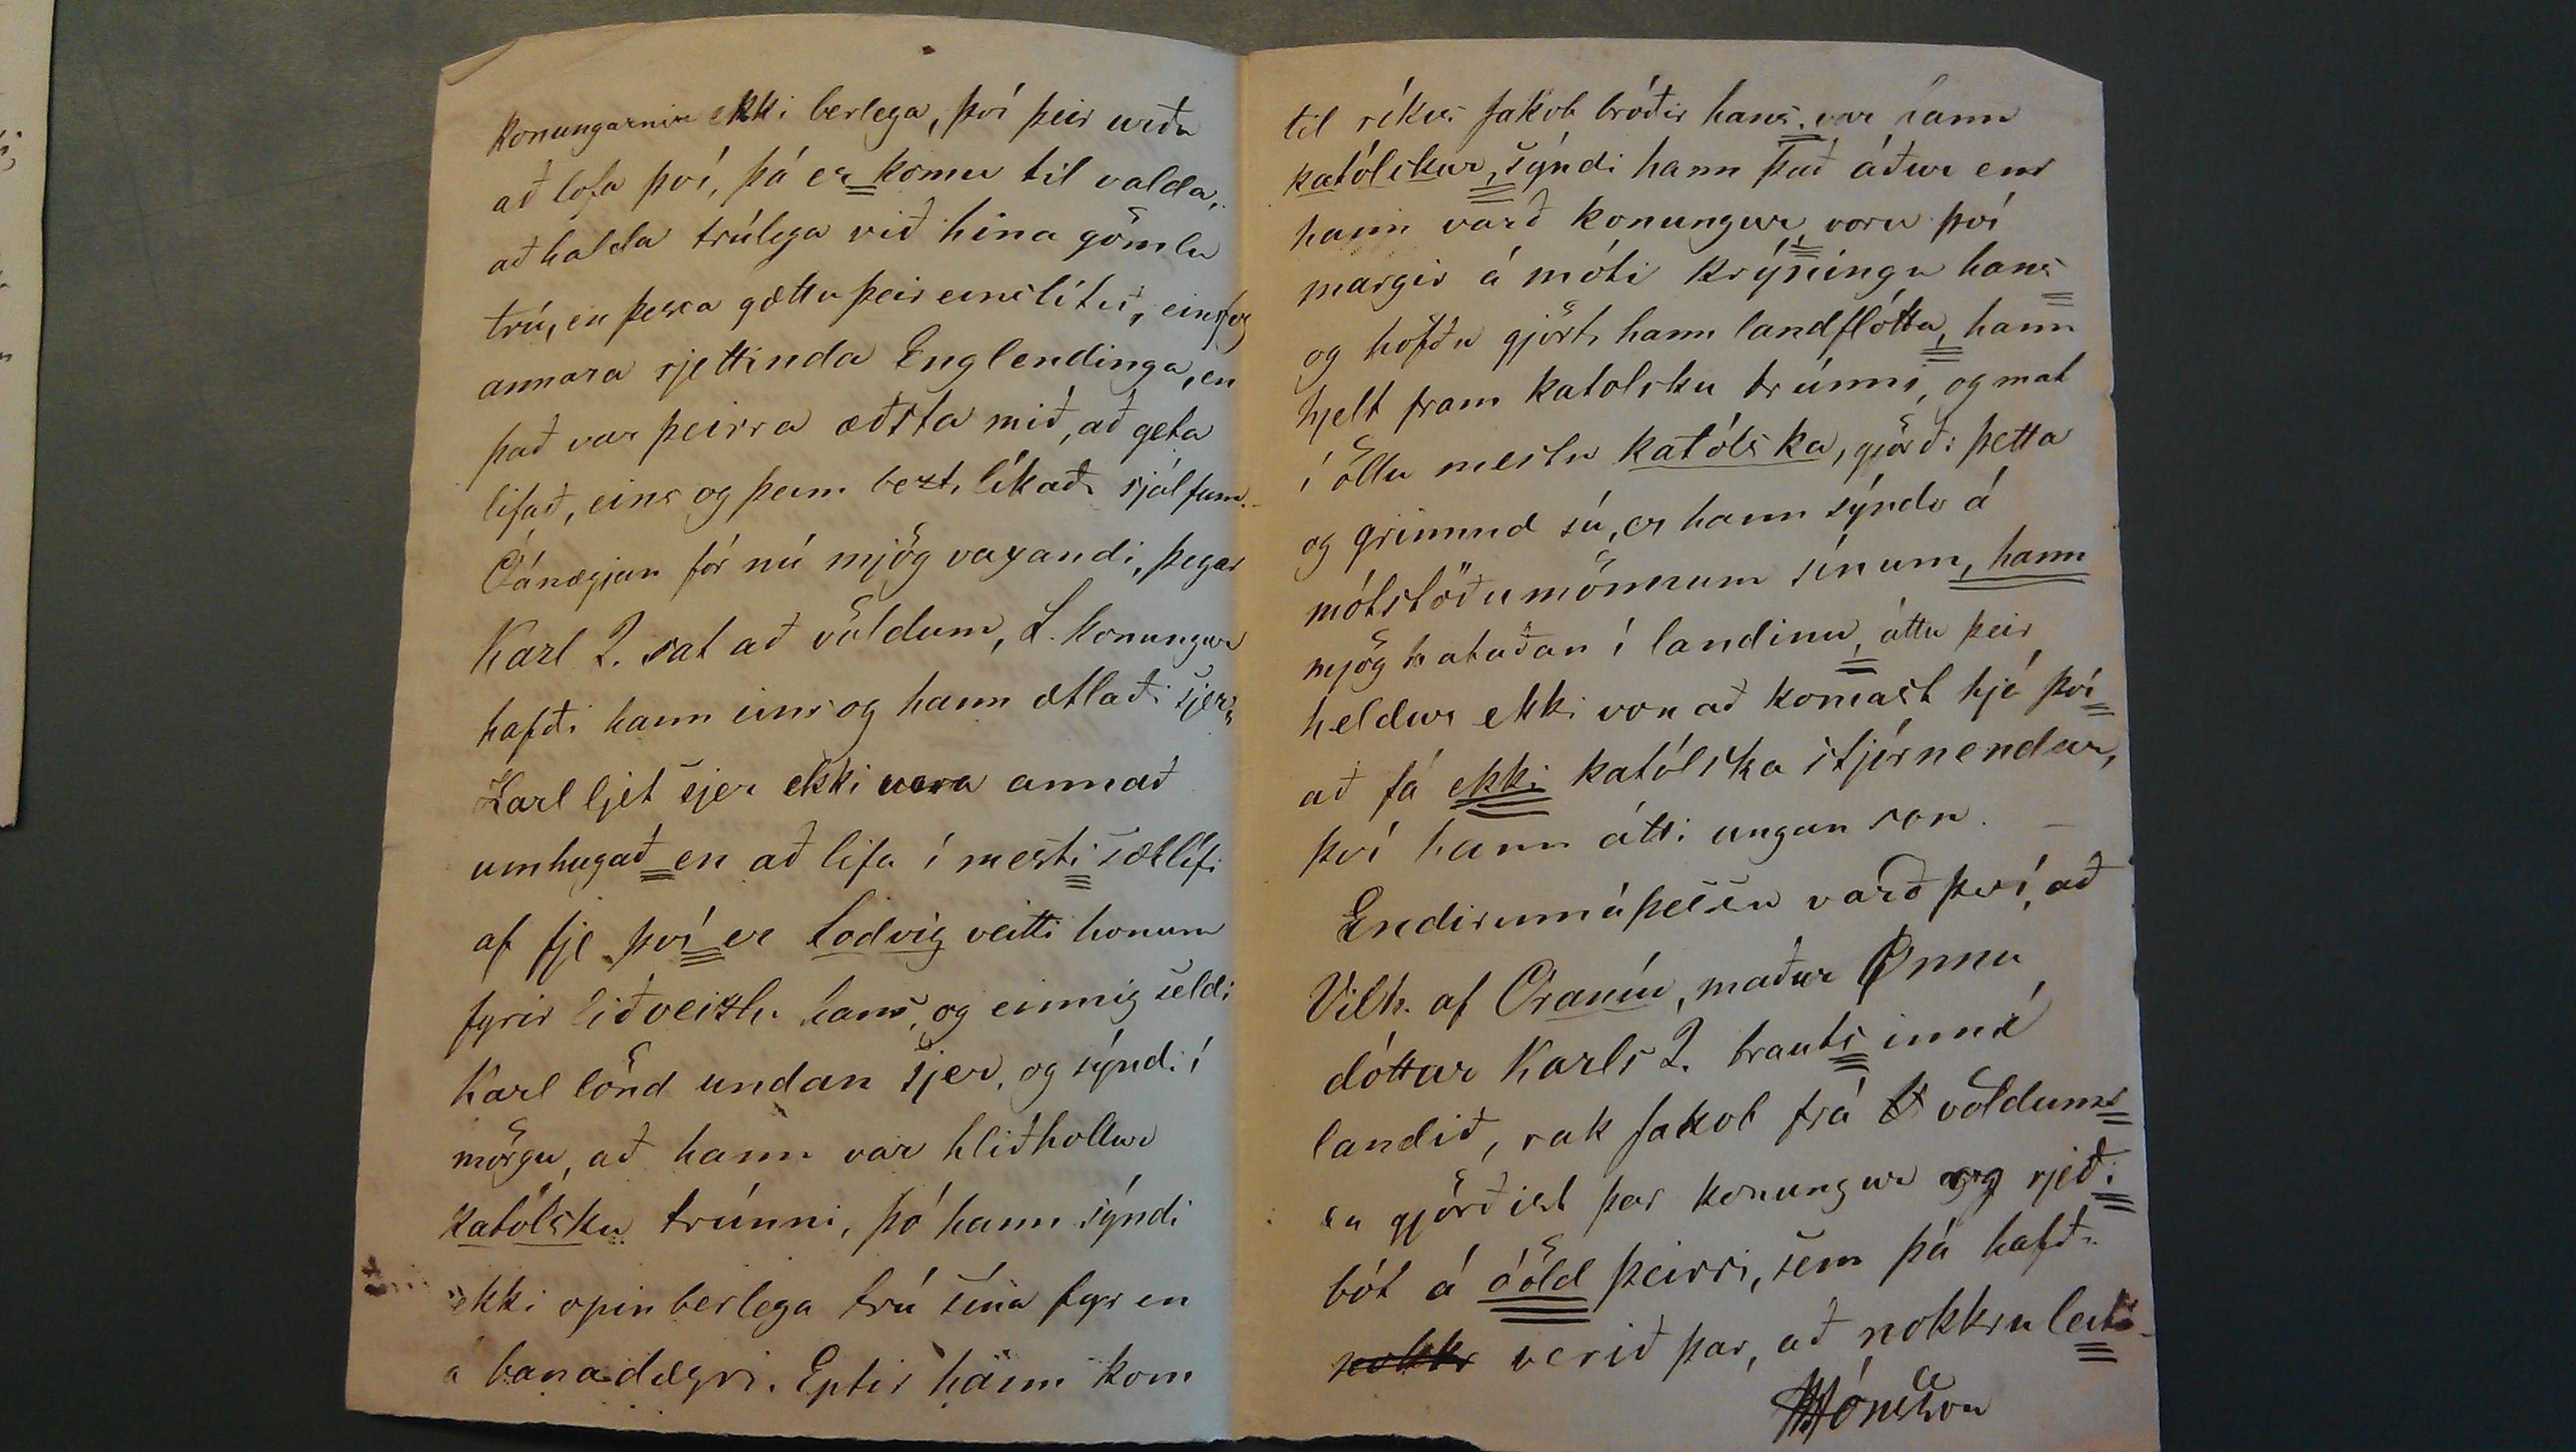 konungarnir ekki berlega, því þeir urðu
að lofa því, þá er komu til valda,
að halda trúlega við hina gömlu
trú, en þessa gættu þeir eins lítið, eins og
annara rjettinda Englendinga, en
það var þeirra æðsta mið, að geta
lifað, eins og þeim bezt líkaði sjálfum.
Óánægjan fór nú mjög vaxandi, þegar
Karl 2. sat að völdum, L. konungur
hafði hann eins og hann ætlaði sjer,
Karl ljet sjer ekki vera annað
umhugað en að lifa í mesti sællífi
af fje því er Lodvig veitti honum
fyrir liðveizlu hans, og einnig seldi
Karl lönd undan sjer, og sýndi í
mörgu, að hann var hliðhollur
katólsku trúnni, þó hann sýndi
ekki opinberlega trú sína fyr en
á banadægri. Eptir hann kom
til ríkis Jakob bróðir hans. var hann
katólskur, sýndi hann það áður enn
hann varð konungur, voru því
margir á móti krýningu hans
og höfðu gjört hann landflótta, hann
hjelt fram katolsku trúnni, og mat
í öllu mestu katólska, gjörði þetta
og grimmd sú, er hann sýndi á
mótstöðumönnum sínum, hann
mjög hataðan í landinu, áttu þeir
heldur ekki von að komast hjá því
að fá ekki katólska stjórnendur,
því hann átti ungan son. —
Endirinn á þessu varð því, að
Vilh. af Oraníu, maður Önnu
dóttur Karls 2. brauts inná
landið, rak Jakob frá völdum
en gjörðist þar konungur og rjeði
bót á óöld þeirri, sem þá hafði
nokkr verið þar, að nokkru leiti-
Jónsson